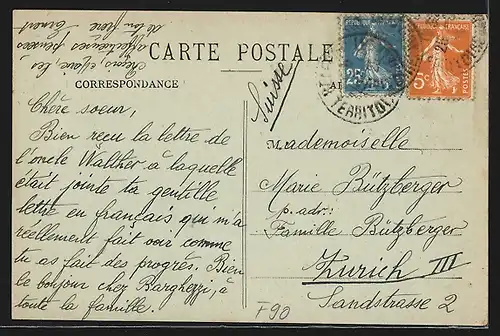 CARTE POSTALE
CORRESPONDANCE
Chère soeur,
Bien reçu la lettre de
l'oncle Walther à laquelle
était jointe ta gentille
lettre en français qui m'a
réellement fait voir comme
tu as fait des progrès. Bien
le bonjour chez Barghezzi, à
toute la famille.
affectueuses pensées
de ton frère Ernest
Suisse
Mademoiselle
Marie Bützberger
p. adr:
Famille Bützberger
Zurich III
Sandstrasse 2
F90
25c
5c
POSTES
TERRITOI